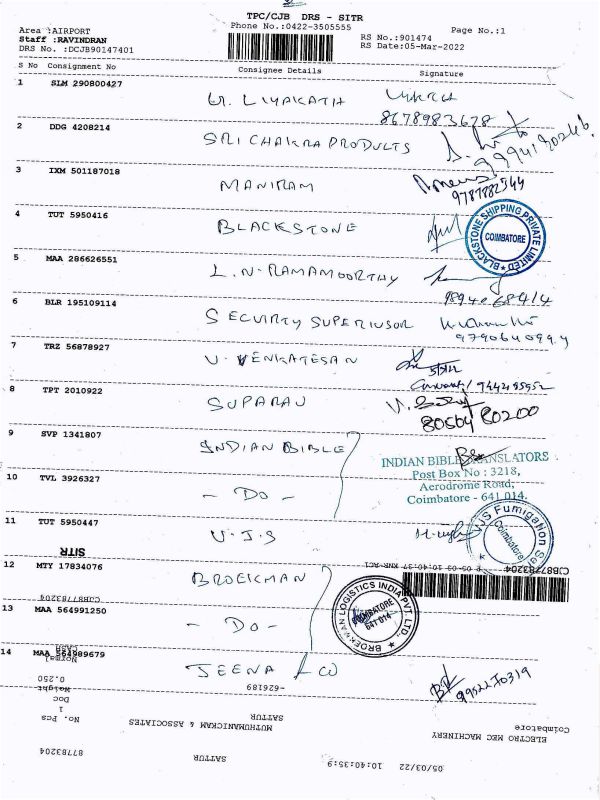 TPC/CJB DRS - SITR
Phone No.:0422-3505555
Page No.:1
Area :AIRPORT
Staff :RAVINDRAN
DRS No. :DCJB90147401
RS No.:901474
RS Date:05-Mar-2022
S No Consignment No Consignee Details Signature
1 SLM 290800427 U. LIYAKATH
8678983678
2 DDG 4208214 SRI CHAKRA PRODULTS
3 IXM 501187018 MANIRAM
9787882544
4 TUT 5950416 BLACKSTONE
BLACKSTONE SHIPPING PRIVATE LIMITED
COIMBATORE
5 MAA 286626551 L.N. RAMAMOORTHY
6 BLR 195109114 SECURITY SUPERIUSOR
9790640994
7 TRZ 56878927 V. VENKATESAN
8 TPT 2010922 SUPARAU
80564 80200
9 SVP 1341807 INDIAN BIBLE
INDIAN BIBLE TRANSLATORS
Post Box No : 3218,
Aerodrome Road,
Coimbatore - 641 014.
10 TVL 3926327 - DO -
11 TUT 5950447 V.J.S
JS Fumigation
Coimbatore
SITR
CJB87783204
12 MTY 17834076 BROEKMAN
CJB87783204
BROEKMAN LOGISTICS INDIA PVT. LTD.,
COIMBATORE
641 014
13 MAA 564991250 - DO -
14 MAA 564989679 JEENA & CO
9952270319
Normal
0.250
Weight
Doc
1
No. Pcs
-626189
SATTUR
MUTHUMANICKAM & ASSOCIATES
Coimbatore
ELECTRO MEC MACHINERY
87783204
SATTUR
05/03/22 10:40:35:9